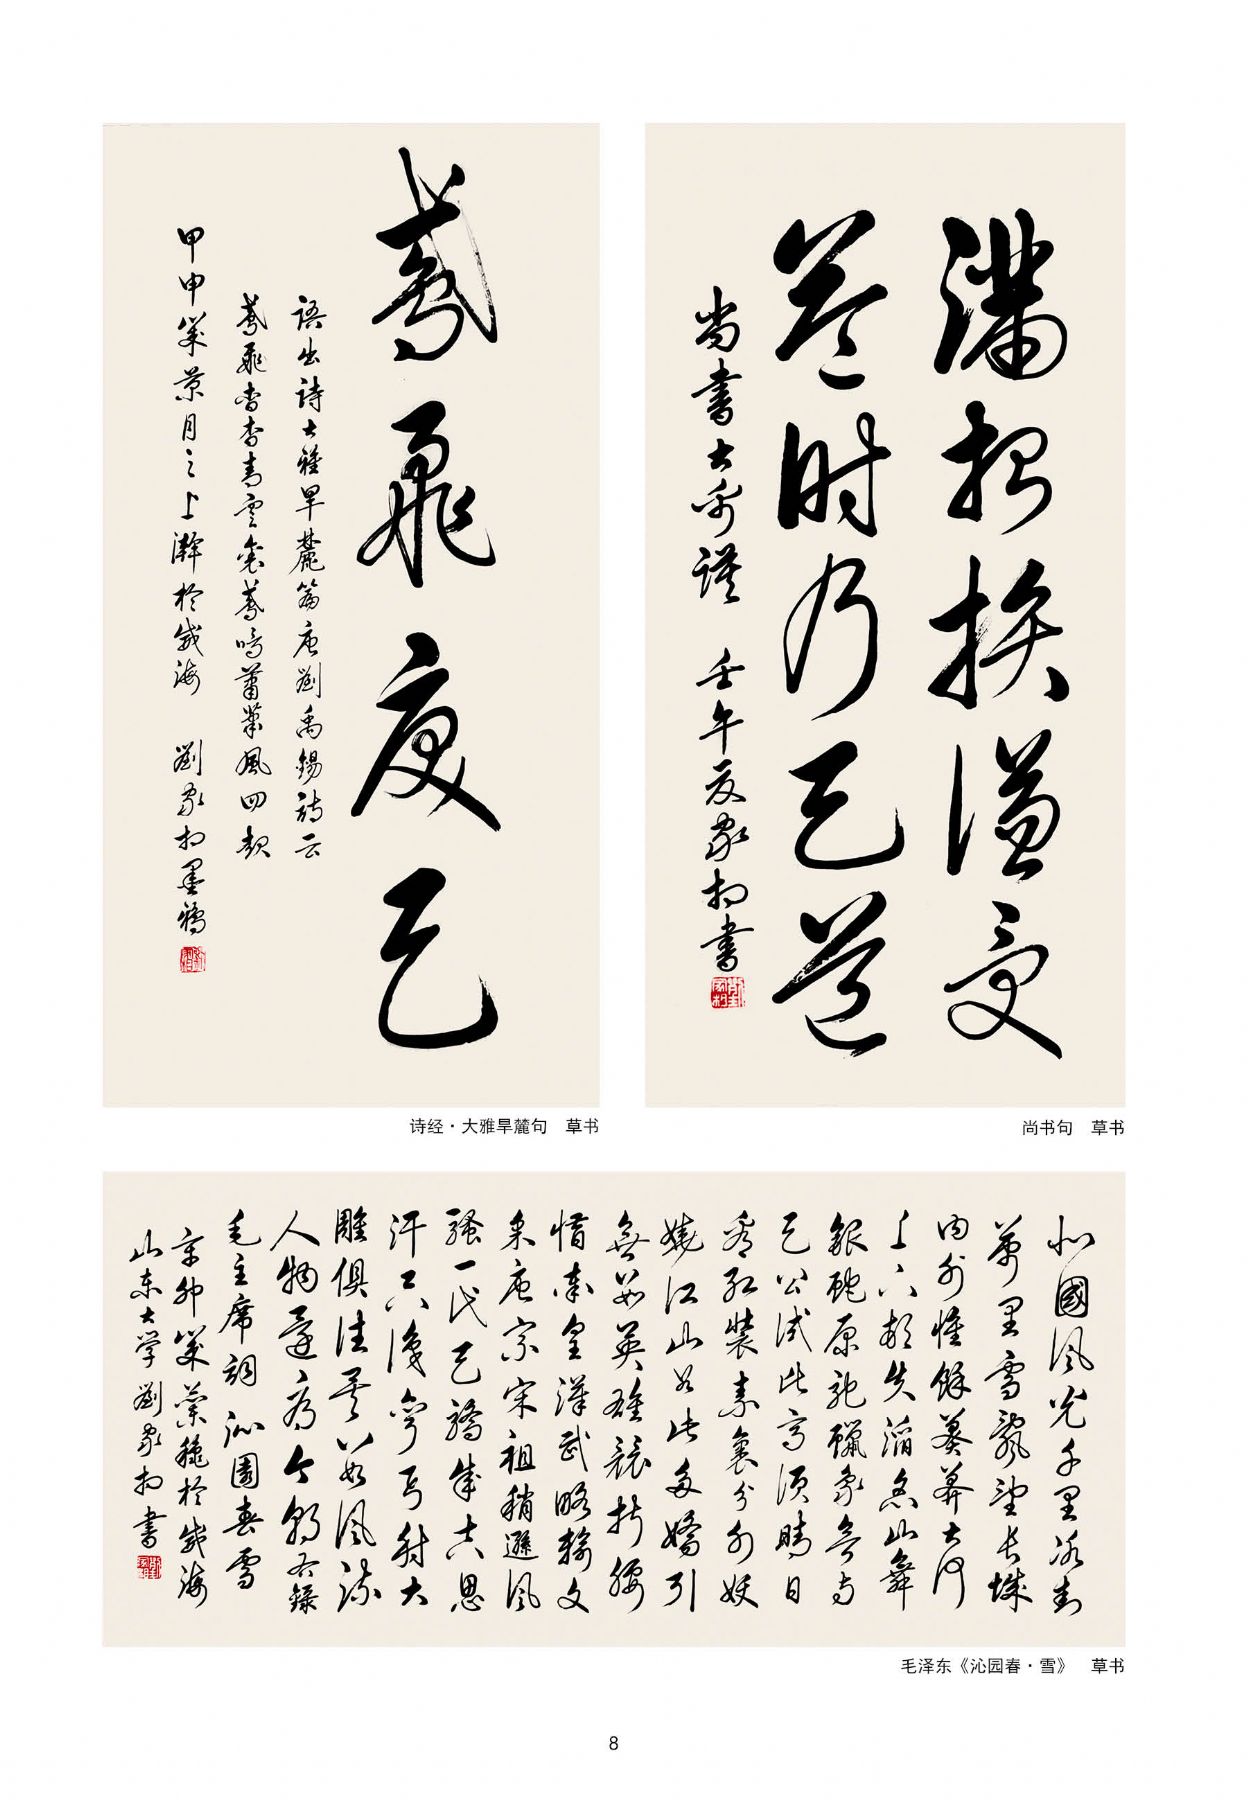 鳶飛戾天
語出詩大雅旱麓篇唐劉禹錫詩云
鳶飛杳杳青雲裏鳶鳴蕭蕭風四起
甲申歲景月之上澣於威海 劉家相墨鴉
诗经·大雅旱麓句 草书
滿招損謙受
益時乃天道
尚書大禹謨 壬午夏家相書
劉家相
尚书句 草书
北國風光千里冰封
萬里雪飄望長城
內外惟餘莽莽大河
上下頓失滔滔山舞
銀蛇原馳蠟象欲與
天公試比高須晴日
看紅裝素裹分外妖
嬈江山如此多嬌引
無數英雄競折腰
惜秦皇漢武略輸文
采唐宗宋祖稍遜風
騷一代天驕成吉思
汗只識彎弓射大
雕俱往矣數風流
人物還看今朝右錄
毛主席詞沁園春雪
辛卯歲蘭穐於威海
山東大学劉家相書
毛泽东《沁园春·雪》 草书
8